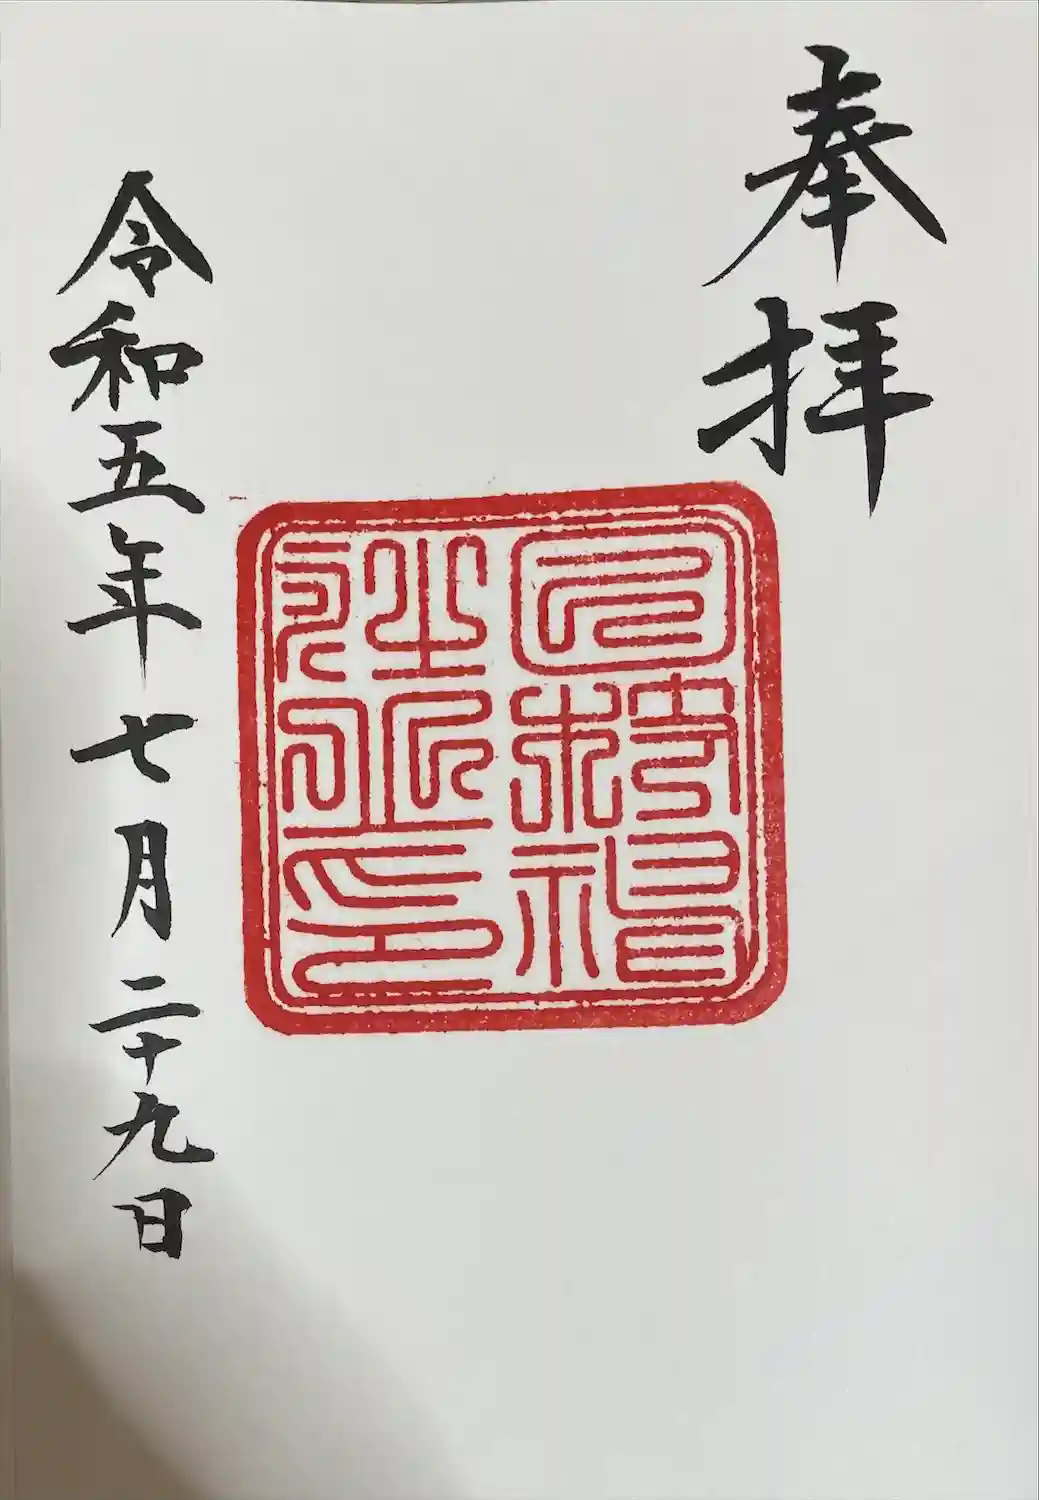 奉拝
令和五年七月二十九日